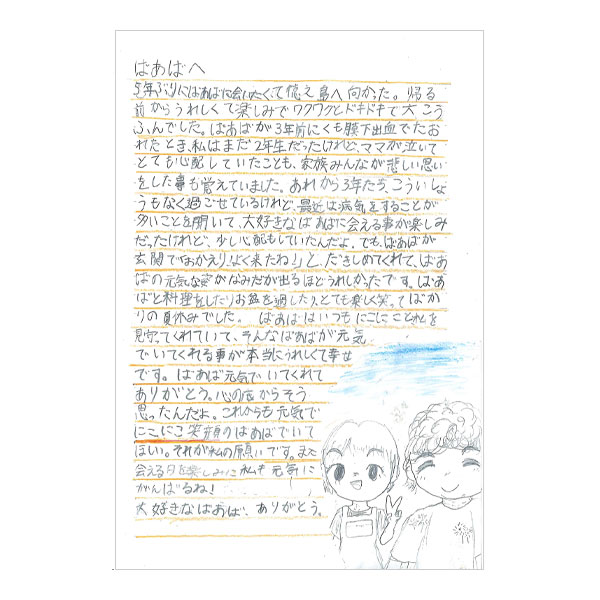 ばあばへ
5年ぶりにばあばに会いたくて徳之島へ向かった。帰る
前からうれしくて楽しみでワクワクとドキドキで大こう
ふんでした。ばあばが3年前にくも膜下出血でたお
れたとき、私はまだ2年生だったけれど、ママが泣いて
とても心配していたことも、家族みんなが悲しい思い
をした事も覚えていました。あれから3年たち、こういしょ
うもなく過ごせているけれど、最近は病気をすることが
多いことを聞いて、大好きなばあばに会える事が楽しみ
だったけれど、少し心配もしていたんだよ。でも、ばあばが
玄関で「おかえり!よく来たね!」と、だきしめてくれて、ばあ
ばの元気な姿がなみだが出るほどうれしかったです。ばあ
ばと料理をしたりお盆を過したり、とても楽しく笑ってばか
りの夏休みでした。 ばあばはいつもにこにこと私を
見守ってくれていて、そんなばあばが元気
でいてくれる事が本当にうれしくて幸せ
です。ばあば元気でいてくれて
ありがとう。心の底からそう
思ったんだよ。これからも元気で
にこにこ笑顔のばあばでいて
ほしい。それが私の願いです。また
会える日を楽しみに私も元気に
がんばるね!
大好きなばあば、ありがとう。